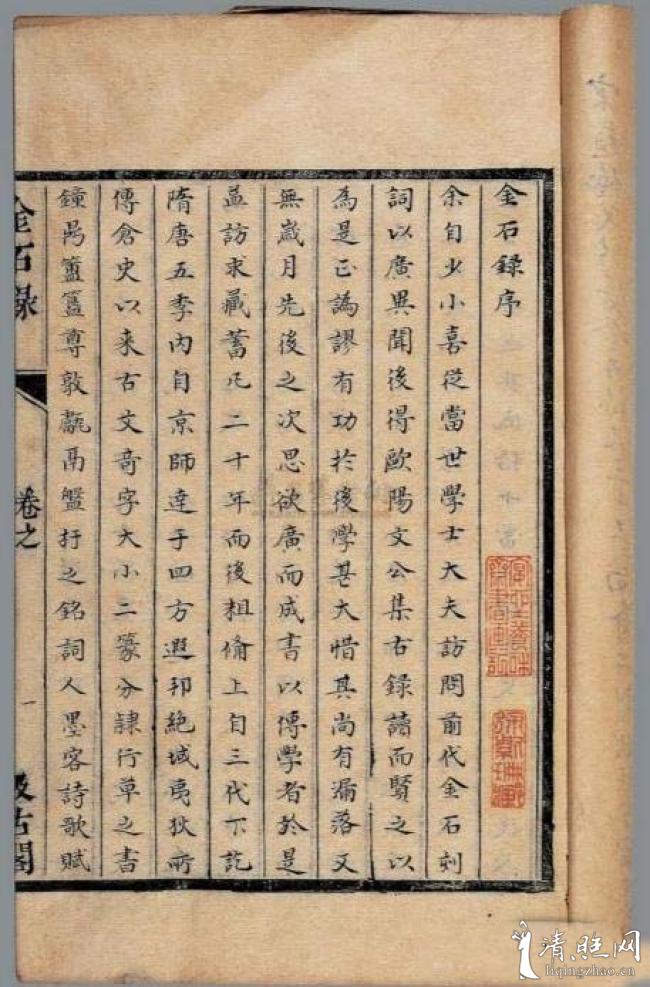 金石錄序
余自少小喜從當世學士大夫訪問前代金石刻
詞以廣異聞後得歐陽文公集古録讀而賢之以
為是正譌謬有功於後學甚大惜其尚有漏落又
無歲月先後之次思欲廣而成書以傳學者於是
益訪求藏蓄凡二十年而後粗備上自三代下訖
隋唐五季内自京師達于四方遐邦絶域夷狄所
傳倉史以來古文奇字大小二篆分隷行草之書
鐘鼎簠簋尊敦甗鬲盤杅之銘詞人墨客詩歌賦
金石録
卷之
一
汲古閣
清照网
liqingzhao.cn